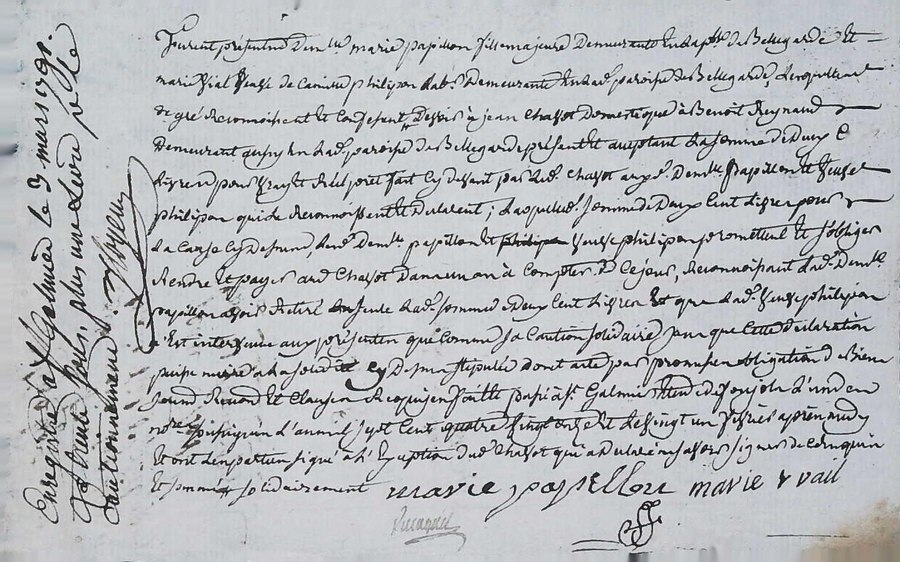 furent présentes dem.lle marie papillon fille majeure demeurante en la p.sse de Bellegarde Et
marie Vial veuve de Camille philipon lab.r demeurante en lad. paroisse de Bellegarde, lesquelles
de gré reconnoissent et confessent devoir à jean Chassot domestique à Benoit Reynaud
demeurant aussy en lad. paroisse de Bellegarde présent et aceptant la somme de deux C
livres pour vray et réel prêt fait cy devant par led. Chassot auxd. dem.lle papillon et veuve
philipon qui le reconnoissent et déclarent; laquelle somme de deux cent livres pour
la cause cy dessus, lesd. dem.lle papillon et philipon veuve philipon promettent et s'oblige
rendre et payer aud. Chassot dans un an à compter de ce jour, reconnoissant lad. dem.lle
papillon avoir retiré seule lad. somme de deux cent livres Et que lad. veuve philipon
n'est intervenue aux présentes que comme sa caution solidaire sans que cette déclaration
puisse nuire à la solidité cy dessus stipulée dont acte par promesse obligation de biens
soumis. Renon. et clauses requises fait et passé à st. Galmier étude de
no.re soussigné l'an mil sept cent quatre vingt onze et le vingt un février après midy
et ont les parties signé à l'exception dud. Chassot qui a déclaré ne savoir signer de ce enquis
et sommé solidairement marie papellon marie vial
Enregistré à st Galmier le 3 mars 1791.
Reçu trois sous, plus une livre pour le
cautionnement.